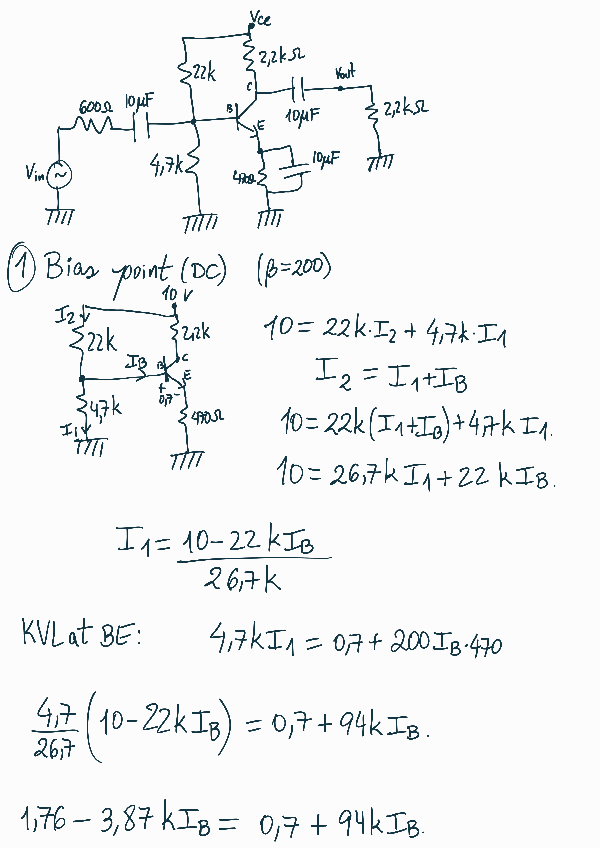 Vcc
2,2kΩ
22k
C
Vout
600Ω 10μF
B
10μF
2,2kΩ
E
Vin
4,7k
470Ω
10μF
① Bias point (DC) (β=200)
10 V
I2
22k
2,2k
IB
B
C
E
+
0,7 -
4,7k
I1
470Ω
10 = 22k·I2 + 4,7k·I1
I2 = I1+IB
10 = 22k(I1+IB)+4,7k I1.
10 = 26,7k I1+22 kIB.
I1 = 10-22 kIB
26,7k
KVL at BE: 4,7k I1 = 0,7 + 200 IB·470
4,7
26,7
(10-22k IB) = 0,7 + 94k IB.
1,76 - 3,87 k IB = 0,7 + 94k IB.